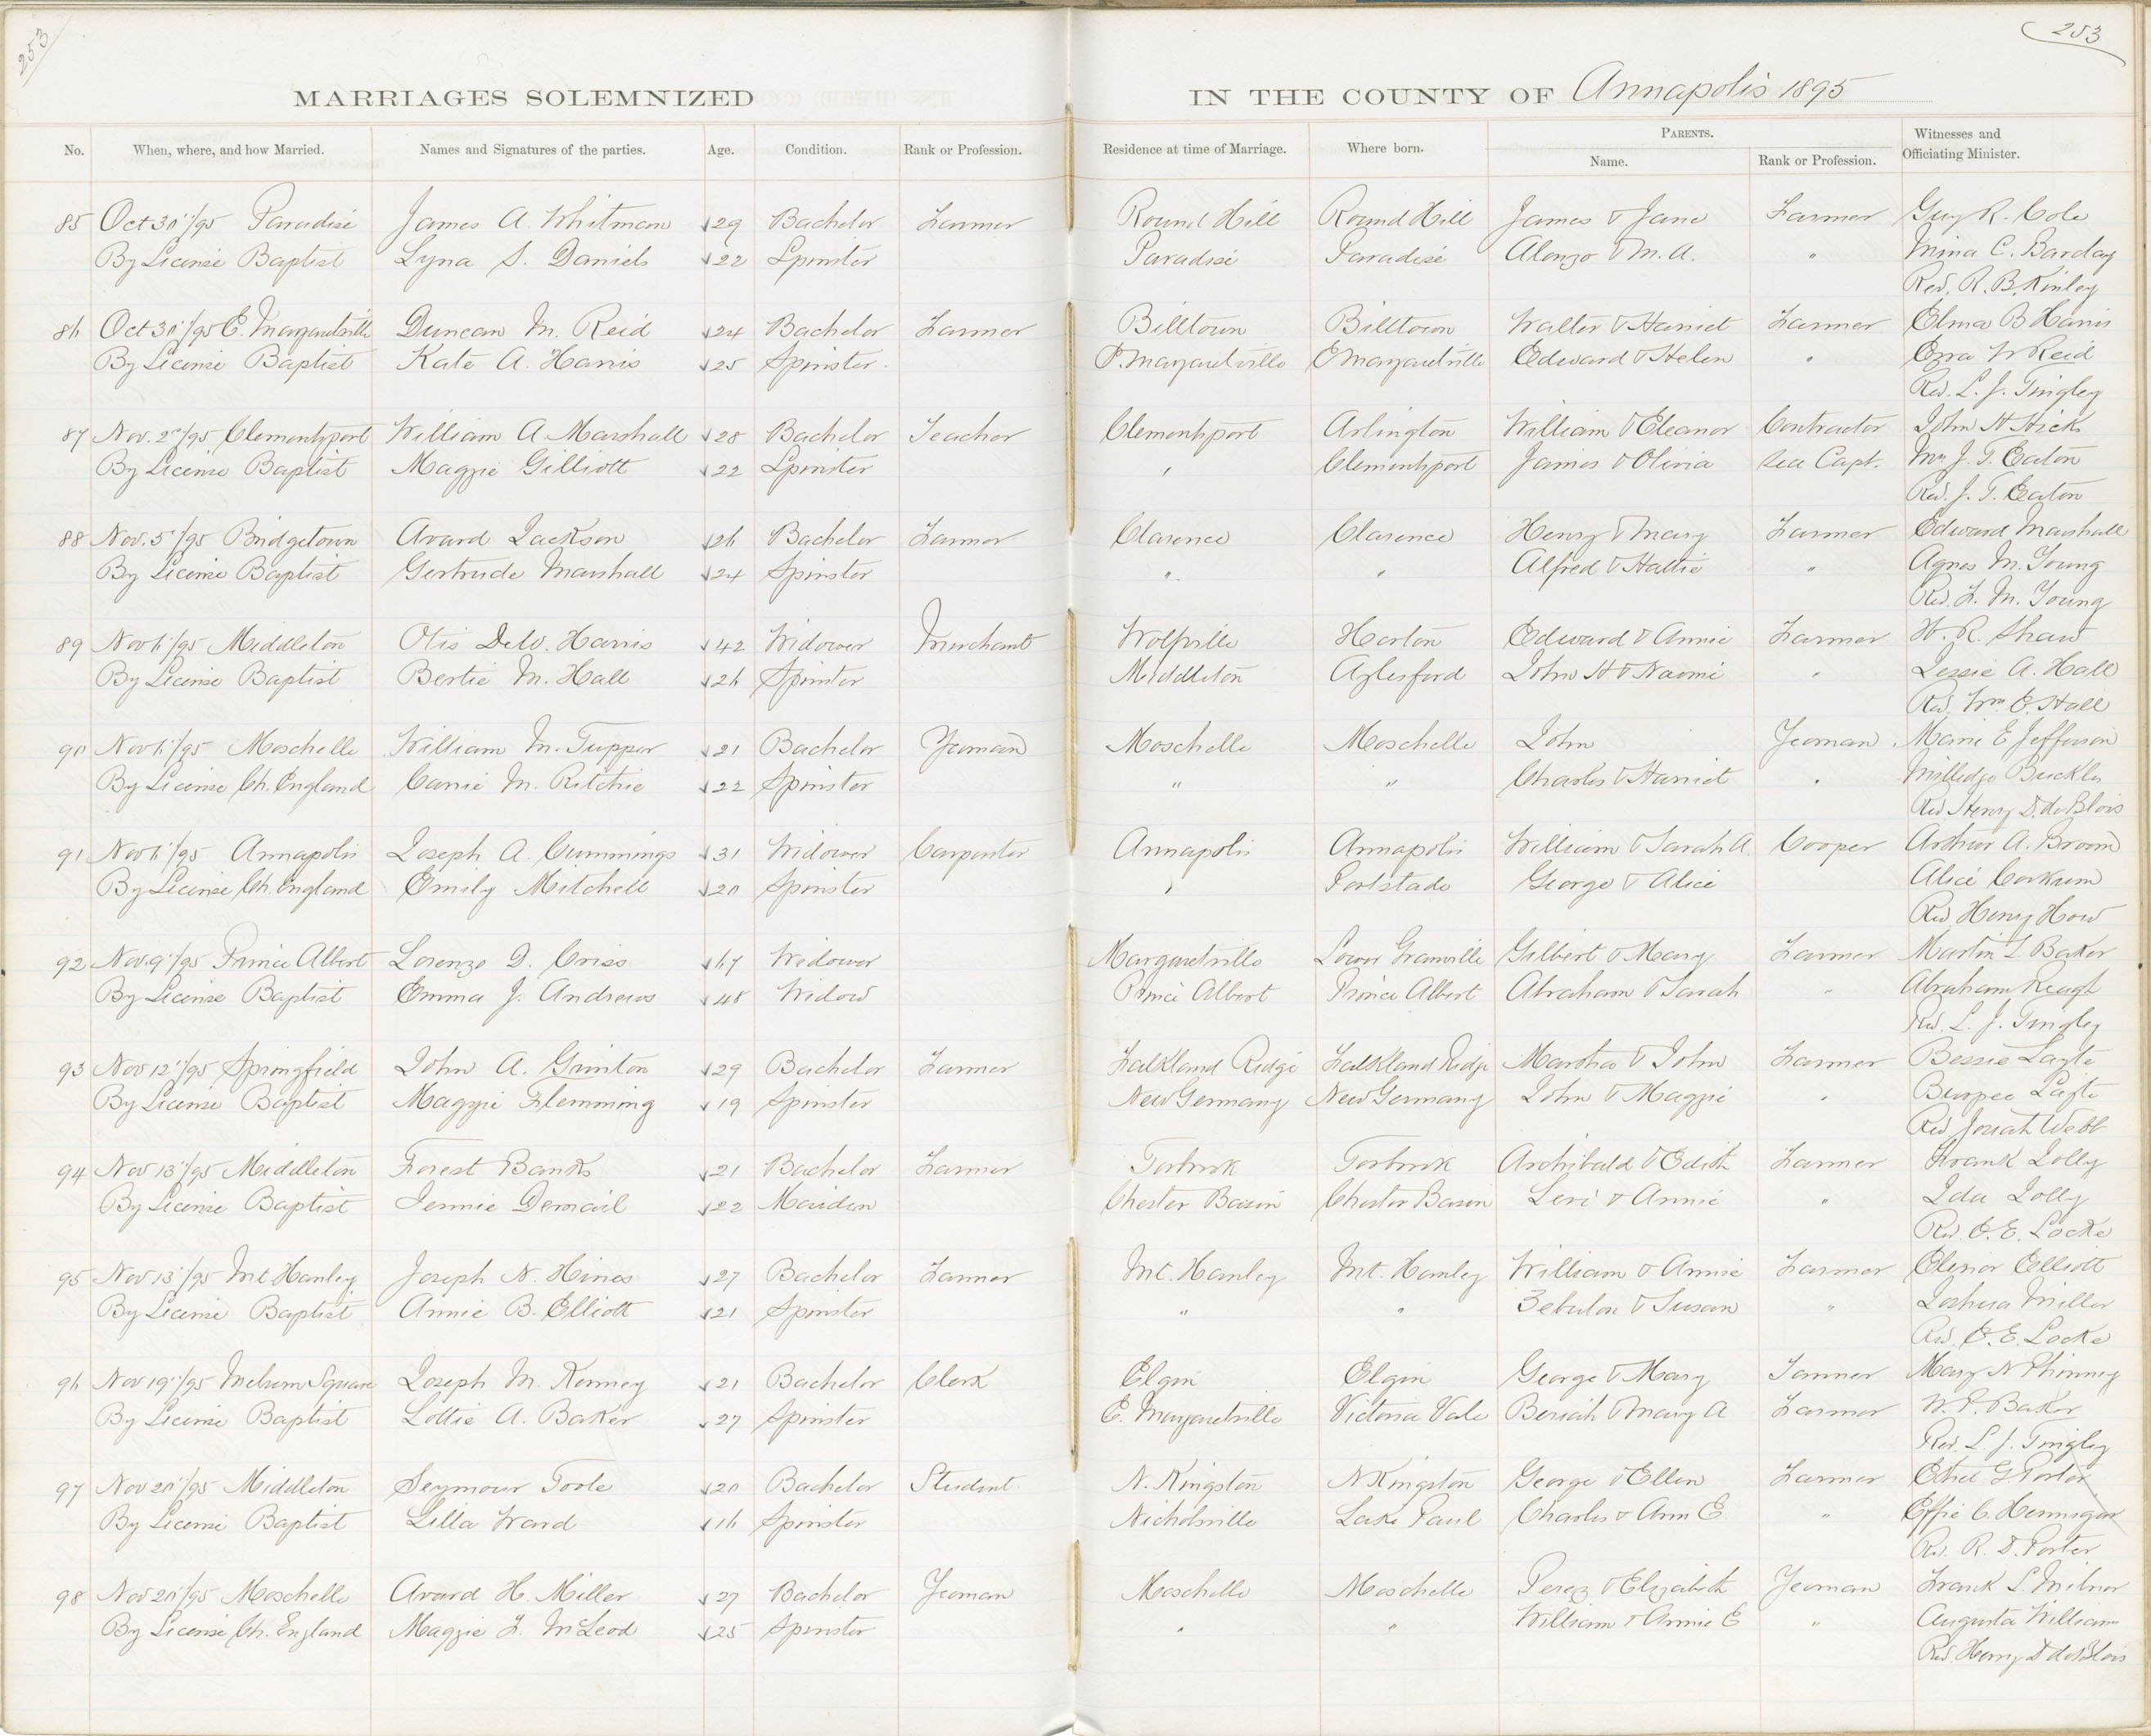 253
253
MARRIAGES SOLEMNIZED IN THE COUNTY OF Annapolis 1895
No. When, where, and how Married. Names and Signatures of the parties. Age. Condition. Rank or Profession. Residence at time of Marriage. Where born. PARENTS. Name. Rank or Profession. Witnesses and Officiating Minister.
85 Oct 30"/95 Paradise James A. Whitman 29 Bachelor Farmer Round Hill Round Hill James & Jane Farmer Guy R. Cole
By License Baptist Lyna S. Daniels 22 Spinster Paradise Paradise Alonzo & M. A. " Mina C. Barclay
Rev. R. B. Kinley
86 Oct 30"/95 E. Margaretville Duncan M. Reid 24 Bachelor Farmer Billtown Billtown Walter & Harriet Farmer Elma B Harris
By License Baptist Kate A. Harris 25 Spinster E. Margaretville E Margaretville Edward & Helen " Ezra W Reid
Rev. L. J. Tingley
87 Nov. 2nd/95 Clementsport William A. Marshall 28 Bachelor Teacher Clementsport Arlington William & Eleanor Contractor John H Hicks
By License Baptist Maggie Gilliott 22 Spinster " Clementsport James & Olivia Sea Capt. Mrs J. T. Eaton
Rev. J. T. Eaton
88 Nov. 5"/95 Bridgetown Avard Jackson 26 Bachelor Farmer Clarence Clarence Henry & Mary Farmer Edward Marshall
By License Baptist Gertrude Marshall 24 Spinster " " Alfred & Hattie " Agnes M. Young
Rev. F. M. Young
89 Nov 6"/95 Middleton Otis DeW. Harris 42 Widower Merchant Wolfville Horton Edward & Annie Farmer H. R. Shaw
By License Baptist Bertie M. Hall 26 Spinster Middleton Aylesford John H & Naomi " Jessie A. Hall
Rev. Wm E. Hall
90 Nov 6"/95 Moschelle William M. Tupper 21 Bachelor Yeoman Moschelle Moschelle John Yeoman Maine E Jefferson
By License Ch. England Carrie M. Ritchie 22 Spinster " " Charles & Harriet " Milledge Buckler
Rev Henry D. deBlois
91 Nov 6"/95 Annapolis Joseph A. Cummings 31 Widower Carpenter Annapolis Annapolis William & Sarah A. Cooper Arthur A. Broom
By License Ch. England Emily Mitchell 20 Spinster " Portslade George & Alice Alice Corkum
Rev. Henry How
92 Nov. 9"/95 Prince Albert Lorenzo D. Criss 67 Widower Margaretville Lower Granville Gilbert & Mary Farmer Martin L. Baker
By License Baptist Emma J. Andrews 48 Widow Prince Albert Prince Albert Abraham & Sarah " Abraham Reagh
Rev. L. J. Tingley
93 Nov 12"/95 Springfield John A. Grinton 29 Bachelor Farmer Falkland Ridge Falkland Ridge Martha & John Farmer Bessie Layte
By License Baptist Maggie Flemming 19 Spinster New Germany New Germany John & Maggie " Burpee Layte
Rev Josiah Webb
94 Nov 13"/95 Middleton Forest Banks 21 Bachelor Farmer Torbrook Torbrook Archibald & Edith Farmer Frank Jolly
By License Baptist Jennie Demail 22 Maiden Chester Basin Chester Basin Levi & Annie " Ida Jolly
Rev. E. E. Locke
95 Nov 13"/95 Mt Hanley Joseph N. Hines 27 Bachelor Farmer Mt. Hanley Mt. Hanley William & Annie Farmer Elenor Elliott
By License Baptist Annie B. Elliott 21 Spinster " " Zebulon & Susan " Joshua Miller
Rev. E. E. Locke
96 Nov 19"/95 Melvern Square Joseph M. Kenney 21 Bachelor Clerk Elgin Elgin George & Mary Tanner Mary N Phinney
By License Baptist Lottie A. Baker 27 Spinster E. Margaretville Victoria Vale Beriah & Mary A Farmer W. P. Baker
Rev. L. J. Tingley
97 Nov 20"/95 Middleton Seymour Foote 20 Bachelor Student N. Kingston N Kingston George & Ellen Farmer Ethel G Porter
By License Baptist Lilla Ward 16 Spinster Nicholsville Lake Paul Charles & Ann E. " Effie C. Hennigar
Rev. R. D. Porter
98 Nov 20"/95 Moschelle Avard H. Miller 27 Bachelor Yeoman Moschelle Moschelle Perez & Elizabeth Yeoman Frank L. Milner
By License Ch. England Maggie F. McLeod 25 Spinster " " William & Annie E " Augusta Williams
Rev. Henry D deBlois